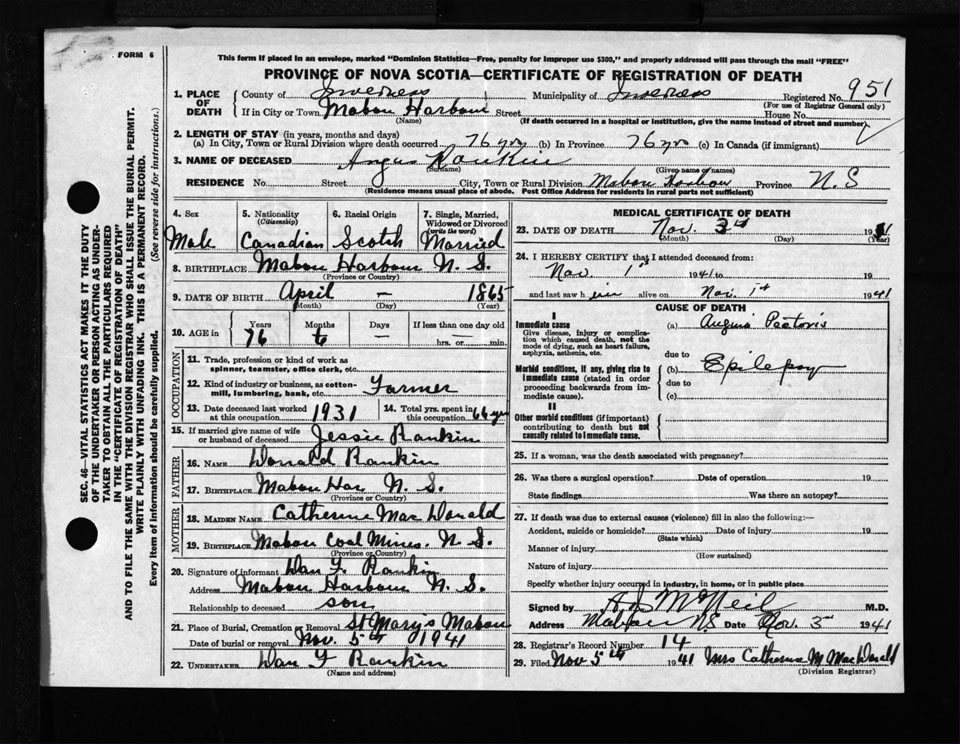 FORM 6
This form if placed in an envelope, marked "Dominion Statistics—Free, penalty for improper use $300," and properly addressed will pass through the mail "FREE"
PROVINCE OF NOVA SCOTIA—CERTIFICATE OF REGISTRATION OF DEATH
1. PLACE OF DEATH County of Inverness Municipality of Inverness Registered No. 951
(For use of Registrar General only)
If in City or Town Mabou Harbour Street House No.
(Name) (If death occurred in a hospital or institution, give the name instead of street and number)
2. LENGTH OF STAY (in years, months and days)
(a) In City, Town or Rural Division where death occurred 76 yrs (b) In Province 76 yrs (c) In Canada (if immigrant)
3. NAME OF DECEASED Angus Rankin
(Surname) (Given name or names)
RESIDENCE No. Street City, Town or Rural Division Mabou Harbour Province N.S
(Residence means usual place of abode. Post Office Address for residents in rural parts not sufficient)
4. Sex 5. Nationality (Citizenship) 6. Racial Origin 7. Single, Married, Widowed or Divorced (write the word)
Male Canadian Scotch Married
8. BIRTHPLACE Mabou Harbour N. S.
(Province or Country)
9. DATE OF BIRTH April — 1865
(Month) (Day) (Year)
10. AGE in Years Months Days If less than one day old
76 6 — hrs. or min.
OCCUPATION
11. Trade, profession or kind of work as spinner, teamster, office clerk, etc.
12. Kind of industry or business, as cotton-mill, lumbering, bank, etc. Farmer
13. Date deceased last worked at this occupation 1931 14. Total yrs. spent in this occupation 66 yrs
15. If married give name of wife or husband of deceased Jessie Rankin
FATHER
16. NAME Donald Rankin
17. BIRTHPLACE Mabou Har N. S.
(Province or Country)
MOTHER
18. MAIDEN NAME Catherine MacDonald
19. BIRTHPLACE Mabou Coal Mines. N. S.
(Province or Country)
20. Signature of informant Dan F. Rankin
Address Mabou Harbour N. S.
Relationship to deceased son
21. Place of Burial, Cremation or Removal St Mary's Mabou
Date of burial or removal Nov. 5th 1941
22. UNDERTAKER Dan F Rankin
(Name and address)
MEDICAL CERTIFICATE OF DEATH
23. DATE OF DEATH Nov. 3rd 1941
(Month) (Day) (Year)
24. I HEREBY CERTIFY that I attended deceased from:
Nov. 1st 1941 to 19
and last saw him alive on Nov. 1st 1941
CAUSE OF DEATH
I
Immediate cause
Give disease, injury or complication which caused death, not the mode of dying, such as heart failure, asphyxia, asthenia, etc.
(a) Angina Pectoris
due to
Morbid conditions, if any, giving rise to immediate cause (stated in order proceeding backwards from immediate cause).
(b) Epilepsy
due to
(c)
II
Other morbid conditions (if important) contributing to death but not causally related to immediate cause.
25. If a woman, was the death associated with pregnancy?
26. Was there a surgical operation? Date of operation 19
State findings Was there an autopsy?
27. If death was due to external causes (violence) fill in also the following:—
Accident, suicide or homicide? Date of injury 19
(State which)
Manner of injury
(How sustained)
Nature of injury
Specify whether injury occurred in industry, in home, or in public place
Signed by A J McNeil M.D.
Address Mabou N.S Date Nov. 3rd 1941
28. Registrar's Record Number 14
29. Filed Nov 5th 1941 Mrs Catherine M MacDonald
(Division Registrar)
SEC. 46—VITAL STATISTICS ACT MAKES IT THE DUTY
OF THE UNDERTAKER OR PERSON ACTING AS UNDERTAKER
TO OBTAIN ALL THE PARTICULARS REQUIRED
IN THE "CERTIFICATE OF REGISTRATION OF DEATH"
AND TO FILE THE SAME WITH THE DIVISION REGISTRAR WHO SHALL ISSUE THE BURIAL PERMIT.
WRITE PLAINLY WITH UNFADING INK. THIS IS A PERMANENT RECORD.
Every item of information should be carefully supplied. (See reverse side for instructions.)